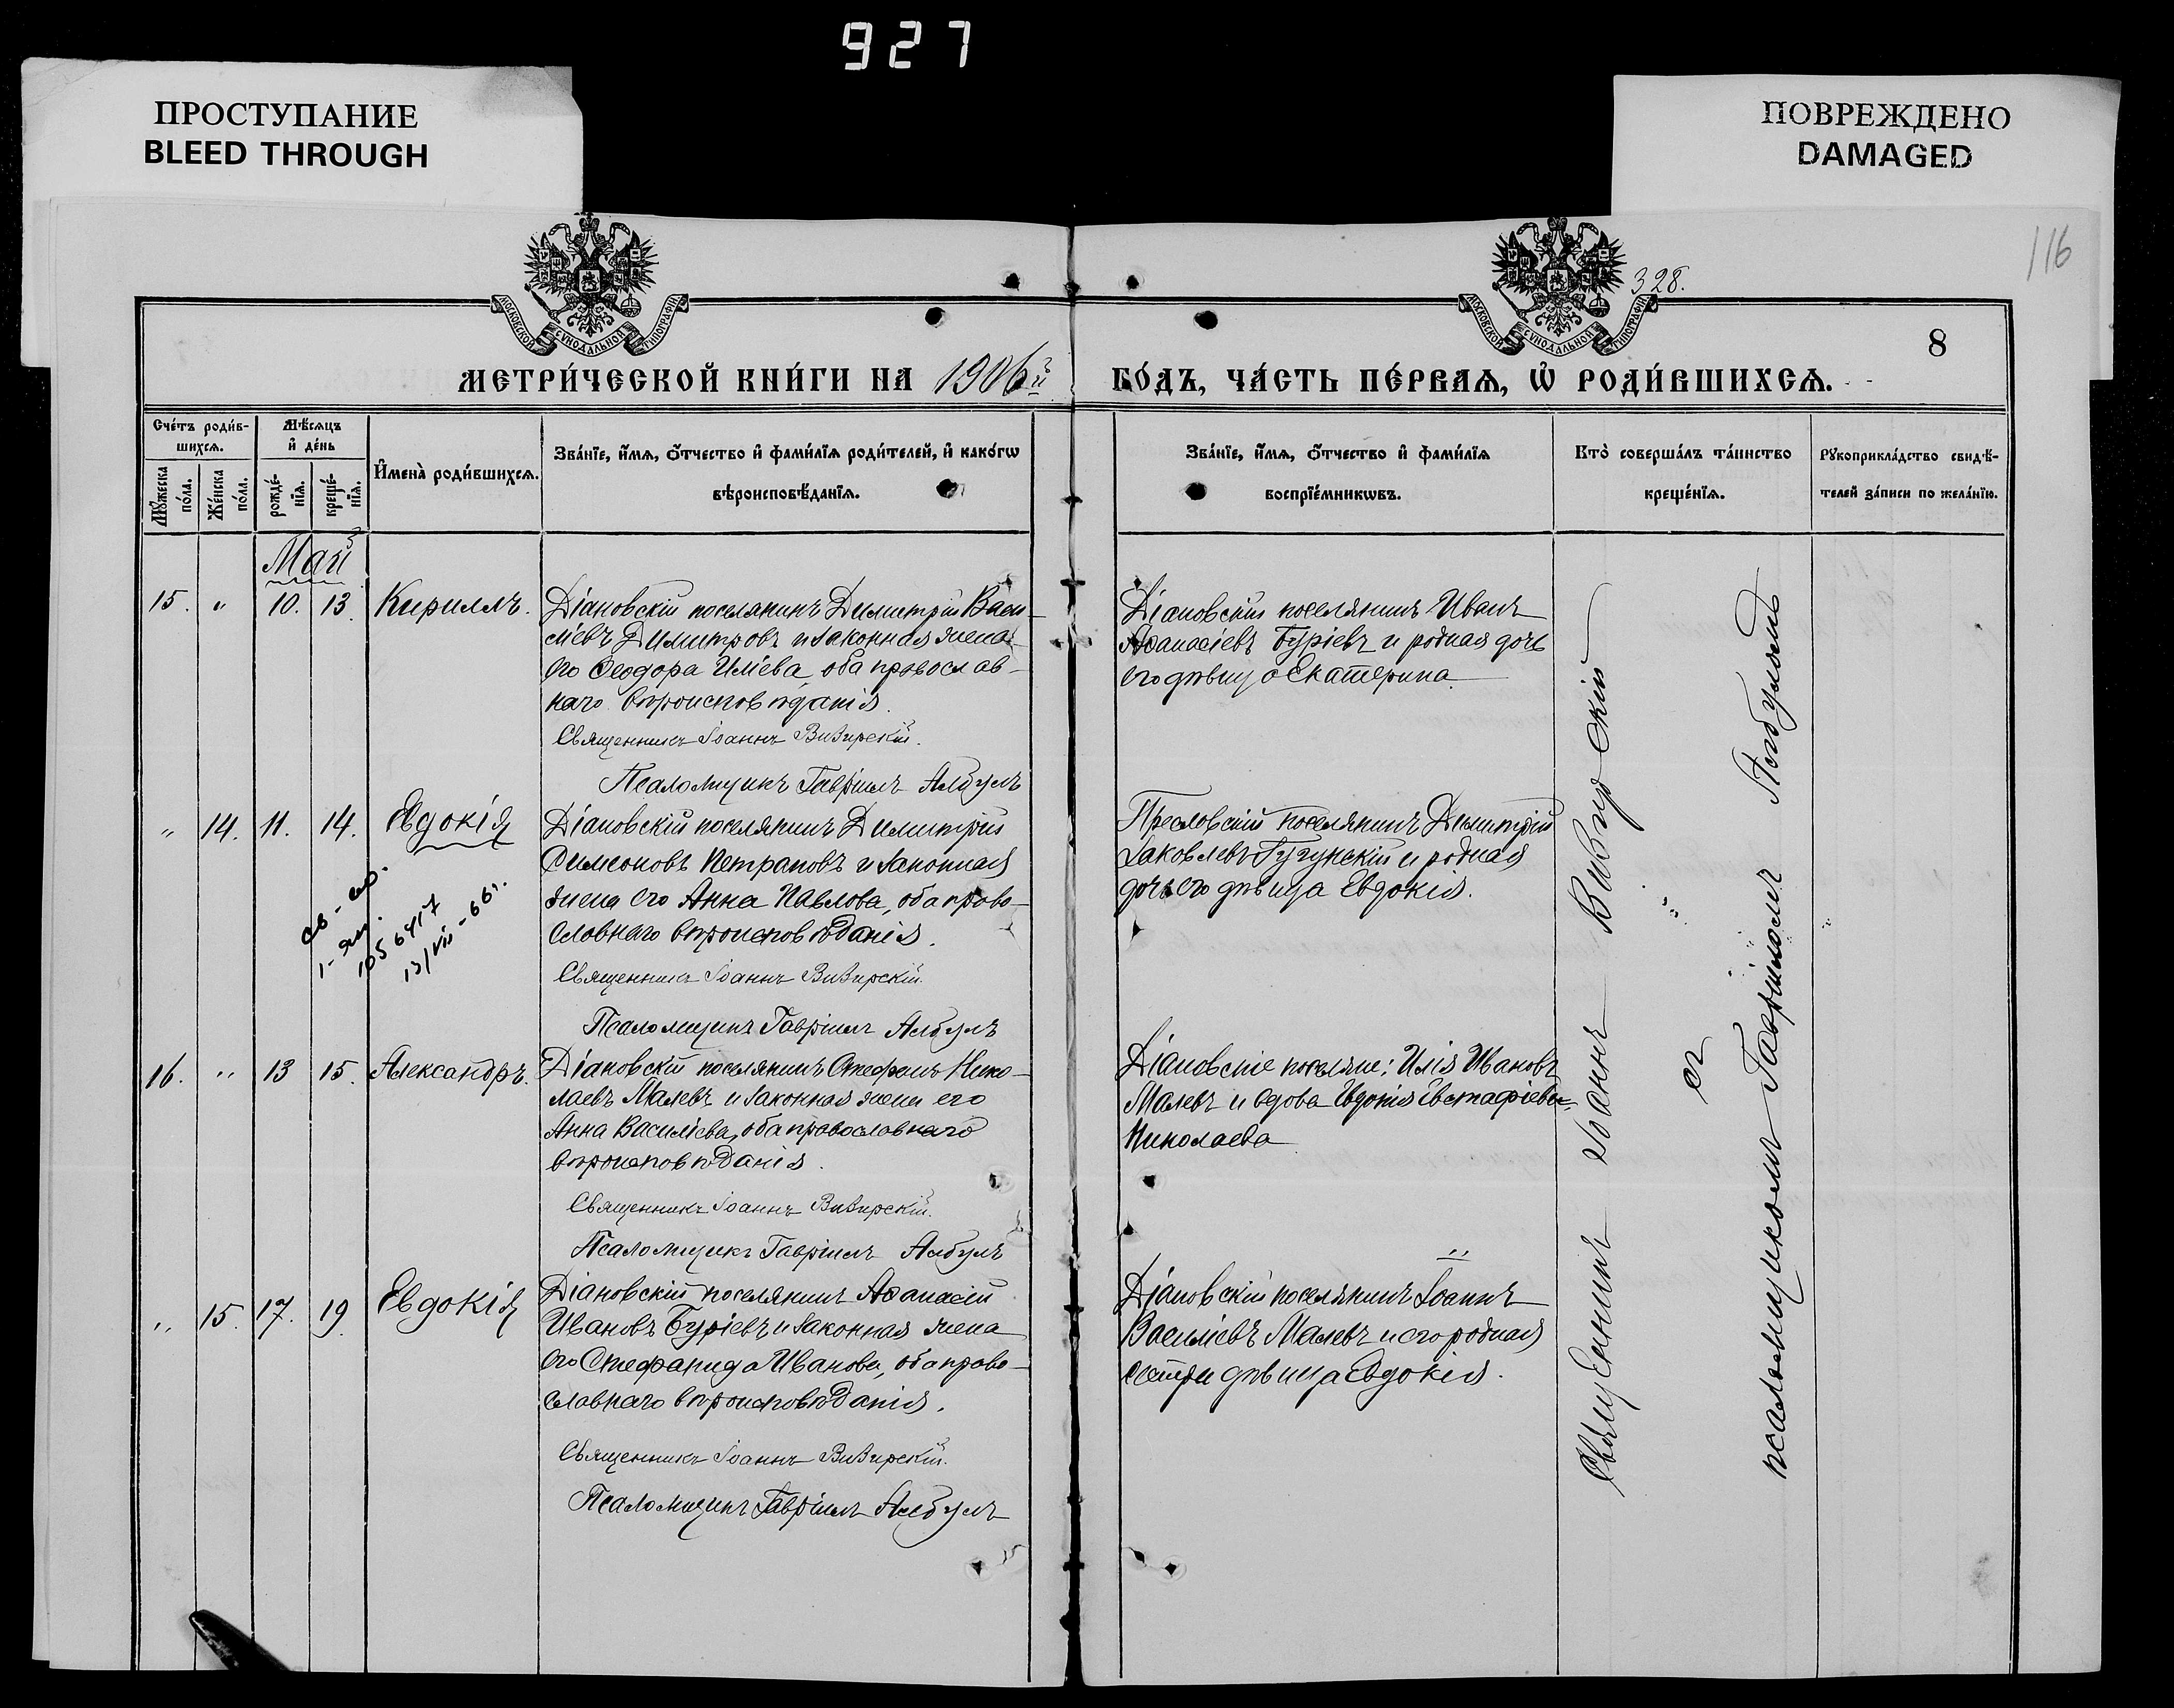 927
ПРОСТУПАНИЕ
BLEED THROUGH
ПОВРЕЖДЕНО
DAMAGED
116
328.
8
МОСКОВСКОЙ СѴНОДАЛЬНОЙ ТИПОГРАФІИ
МОСКОВСКОЙ СѴНОДАЛЬНОЙ ТИПОГРАФІИ
МЕТРИ́ЧЕСКОЙ КНИ́ГИ НА 1906й ГО́ДЪ, ЧА́СТЬ ПЕ́РВАѦ, Ѡ҆ РОДИ́ВШИХСѦ.
Сче́тъ роди́в-
шихсѧ.
Мꙋ́жеска по́ла.
Же́нска по́ла.
Мѣ́сѧцъ
и҆ де́нь
рожде́-
нїѧ.
креще́-
нїѧ.
И҆мена̀ роди́вшихсѧ.
Зва́нїе, и҆́мѧ, ѻ҆́тчество и҆ фами́лїѧ роди́телей, и҆ како́гѡ
вѣроисповѣ́данїѧ.
Зва́нїе, и҆́мѧ, ѻ҆́тчество и҆ фами́лїѧ
воспрїе́мникѡвъ.
Кто̀ соверша́лъ та́инство
креще́нїѧ.
Рꙋкоприкла́дство свидѣ́-
телей за́писи по жела́нїю.
Май
15. " 10. 13. Кириллъ.
Діановскій поселянинъ Димитрій Васи-
ліевъ Димитровъ и законная жена
его Ѳеодора Иліева, оба православ-
наго вѣроисповѣданія.
Священникъ Іоаннъ Визирскій.
Псаломщикъ Гавріилъ Албулъ
Діановскій поселянинъ Иванъ
Аѳанасіевъ Буріевъ и родная дочь
его дѣвица Екатерина.
" 14. 11. 14. Евдокія
Діановскій поселянинъ Димитрій
Симеоновъ Петраповъ и законная
жена его Анна Павлова, оба право-
славнаго вѣроисповѣданія.
Священникъ Іоаннъ Визирскій.
Псаломщикъ Гавріилъ Албулъ
Преславскій поселянинъ Димитрій
Іаковлевъ Гугунскій и родная
дочь его дѣвица Евдокія.
1-яц.
105 6417
13/VII-66 г.
16. " 13 15. Александръ.
Діановскій поселянинъ Стефанъ Нико-
лаевъ Малевъ и законная жена его
Анна Василіева, оба православнаго
вѣроисповѣданія.
Священникъ Іоаннъ Визирскій.
Псаломщикъ Гавріилъ Албулъ
Діановскіе поселяне: Илія Ивановъ
Малевъ и вдова Евдокія Евстафіева
Николаева
" 15. 17. 19. Евдокія
Діановскій поселянинъ Аѳанасій
Ивановъ Буріевъ и законная жена
его Стефанида Иванова, оба право-
славнаго вѣроисповѣданія.
Священникъ Іоаннъ Визирскій.
Псаломщикъ Гавріилъ Албулъ
Діановскій поселянинъ Іоаннъ
Василіевъ Малевъ и его родная
сестра дѣвица Евдокія.
Священникъ Іоаннъ Визирскій
съ
псаломщикомъ Гавріиломъ Албуломъ